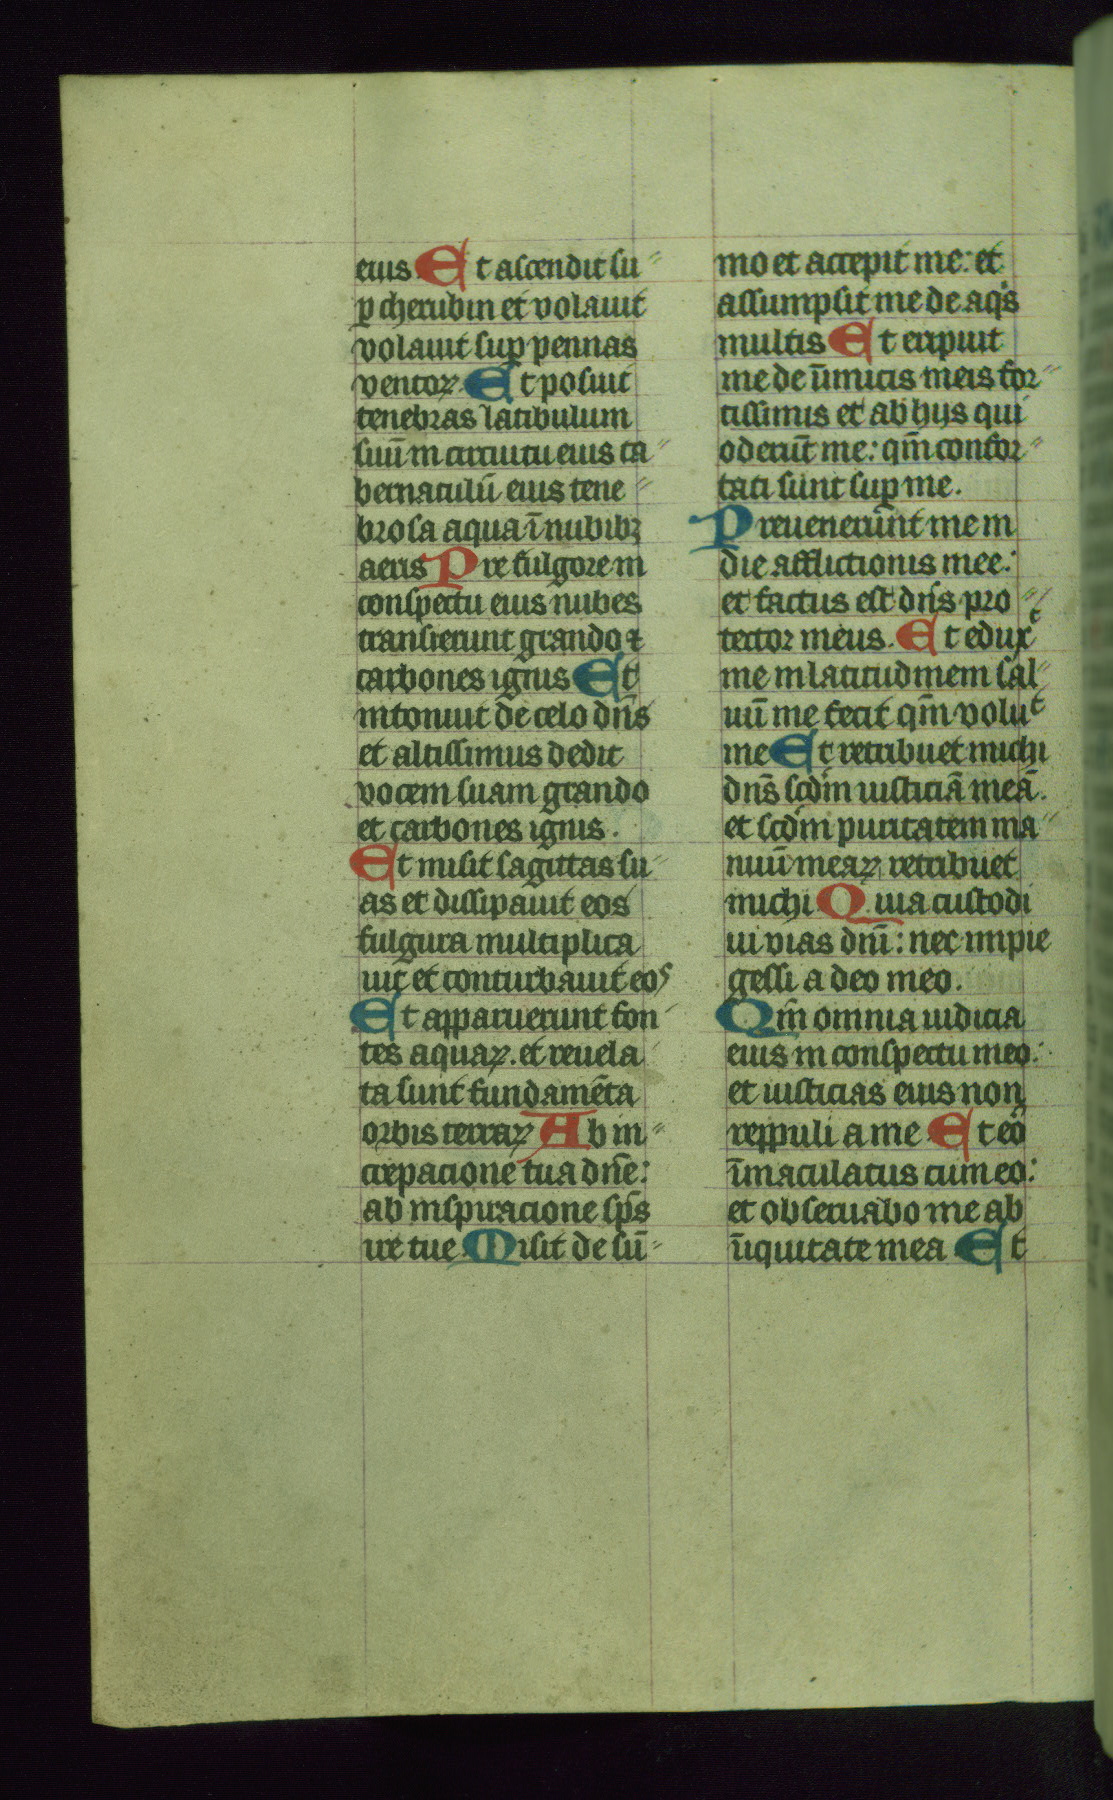 eius Et ascendit su″
ꝑ cherubin et volauit
volauit suꝑ pennas
ventoꝝ. Et posuit
tenebras latibulum
suū in circuitu eius ta″
bernaculū eius tene″
brosa aqua ī nubibꝫ
aeris Pre fulgore in
conspectu eius nubes
transierunt grando ⁊
carbones ignis Et
intonuit de celo dn̄s
et altissimus dedit
vocem suam grando
et carbones ignis.
Et misit sagittas su″
as et dissipauit eos
fulgura multiplica
uit et conturbauit eos
Et apparuerunt fon″
tes aquaꝝ. et reuela
ta sunt fundamēta
orbis terraꝝ Ab in″
crepacione tua dn̄e:
ab inspiracione sp̄s
ire tue Misit de sū″
mo et accepit me: et
assumpsit me de aqͥs
multis Et eripuit
me de īimicis meis for″
tissimis et ab hijs qui
oderūt me: qm̄ confor″
tati sunt suꝑ me.
Preuenerūnt me in
die afflictionis mee:
et factus est dn̄s pro″
tector meus. Et eduxᵗ
me in latitudinem sal″
uū me fecit qm̄ voluᵗ
me Et retribuet michi
dn̄s scdm̄ iusticiā meā.
et scdm̄ puritatem ma″
nuū meaꝝ retribuet
michi Quia custodi
ui vias dnī: nec impie
gessi a deo meo.
Qm̄ omnia iudicia
eius in conspectu meo:
et iusticias eius non
reppuli a me Et eō
īmaculatus cum eo:
et obseruabo me ab
īiquitate mea Et